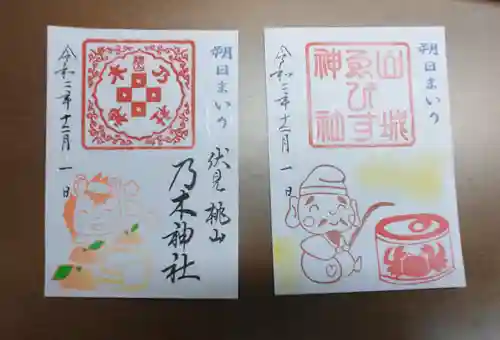 朔日まいり
伏見桃山
乃木神社
令和二年十二月一日
朔日まいり
山城
ゑびす
神社
令和二年十二月一日